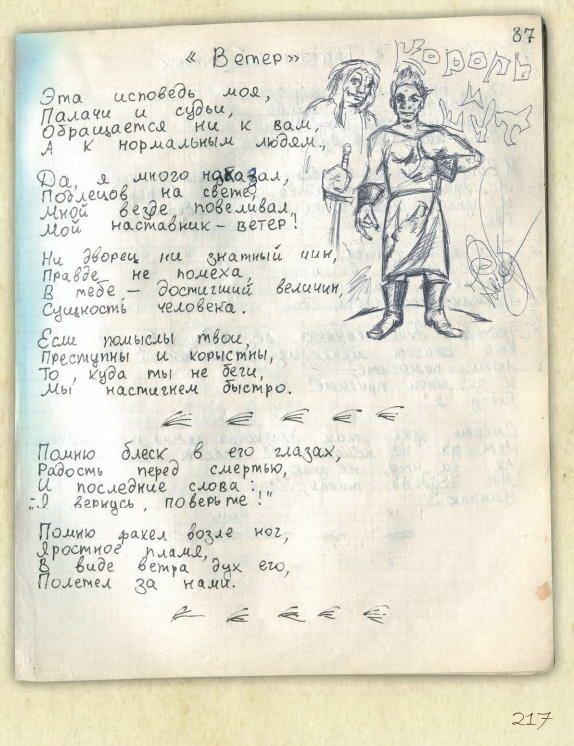 87
« Ветер»
Король
и
шут
Эта исповедь моя,
Палачи и судьи,
Обращается ни к вам,
А к нормальным людям.
Да, я много наказал,
Подлецов на свете,
Мной везде повеливал,
Мой наставник – ветер!
Ни дворец ни знатный чин,
Правде не помеха,
В тебе – достигший величин,
Сущность человека.
Если помыслы твои,
Преступны и корыстны,
То, куда ты не беги,
Мы настигнем быстро.
Помню блеск в его глазах,
Радость перед смертью,
И последние слова:
„Я вернусь, поверьте!"
Помню факел возле ног,
Яростное пламя,
В виде ветра дух его,
Полетел за нами.
217